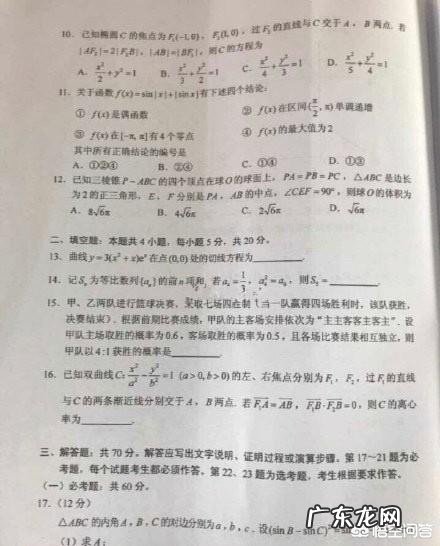 10. 已知椭圆 C 的焦点为 F₁(-1,0), F₂(1,0), 过 F₂ 的直线与 C 交于 A, B 两点. 若
|AF₂|=2|F₂B|, |AB|=|BF₁|, 则 C 的方程为
A. x²/2+y²=1 B. x²/3+y²/2=1 C. x²/4+y²/3=1 D. x²/5+y²/4=1
11. 关于函数 f(x)=sin|x|+|sin x| 有下述四个结论:
① f(x) 是偶函数 ② f(x) 在区间(π/2, π) 单调递增
③ f(x) 在[-π, π]有 4 个零点 ④ f(x) 的最大值为 2
其中所有正确结论的编号是
A. ①②④ B. ②④ C. ①④ D. ①③
12. 已知三棱锥 P-ABC 的四个顶点在球 O 的球面上, PA=PB=PC, △ABC 是边长
为 2 的正三角形, E, F 分别是 PA, AB 的中点, ∠CEF=90°, 则球 O 的体积为
A. 8√6π B. 4√6π C. 2√6π D. √6π
二、填空题: 本题共 4 小题, 每小题 5 分, 共 20 分.
13. 曲线 y=3(x²+x)eˣ 在点(0,0) 处的切线方程为
14. 记 Sₙ 为等比数列{aₙ} 的前 n 项和, 若 a₁=1/3, a₄²=a₆, 则 S₅=
15. 甲、乙两队进行篮球决赛, 采取七场四胜制(当一队赢得四场胜利时, 该队获胜,
决赛结束). 根据前期比赛成绩, 甲队的主客场安排依次为“主主客客主客主”. 设
甲队主场取胜的概率为 0.6, 客场取胜的概率为 0.5, 且各场比赛结果相互独立, 则
甲队以 4∶1 获胜的概率是
16. 已知双曲线 C: x²/a²-y²/b²=1 (a>0,b>0) 的左、右焦点分别为 F₁, F₂, 过 F₁ 的直线
与 C 的两条渐近线分别交于 A, B 两点. 若 F₁A=AB, F₁B·F₂B=0, 则 C 的离心
率为
三、解答题: 共 70 分。解答应写出文字说明、证明过程或演算步骤。第 17~21 题为必
考题, 每个试题考生都必须作答。第 22、23 题为选考题, 考生根据要求作答。
(一) 必考题: 共 60 分。
17. (12 分)
△ABC 的内角 A, B, C 的对边分别为 a, b, c, 设(sin B-sin C)²=
(1) 求 A;
广东龙网
悟空问答